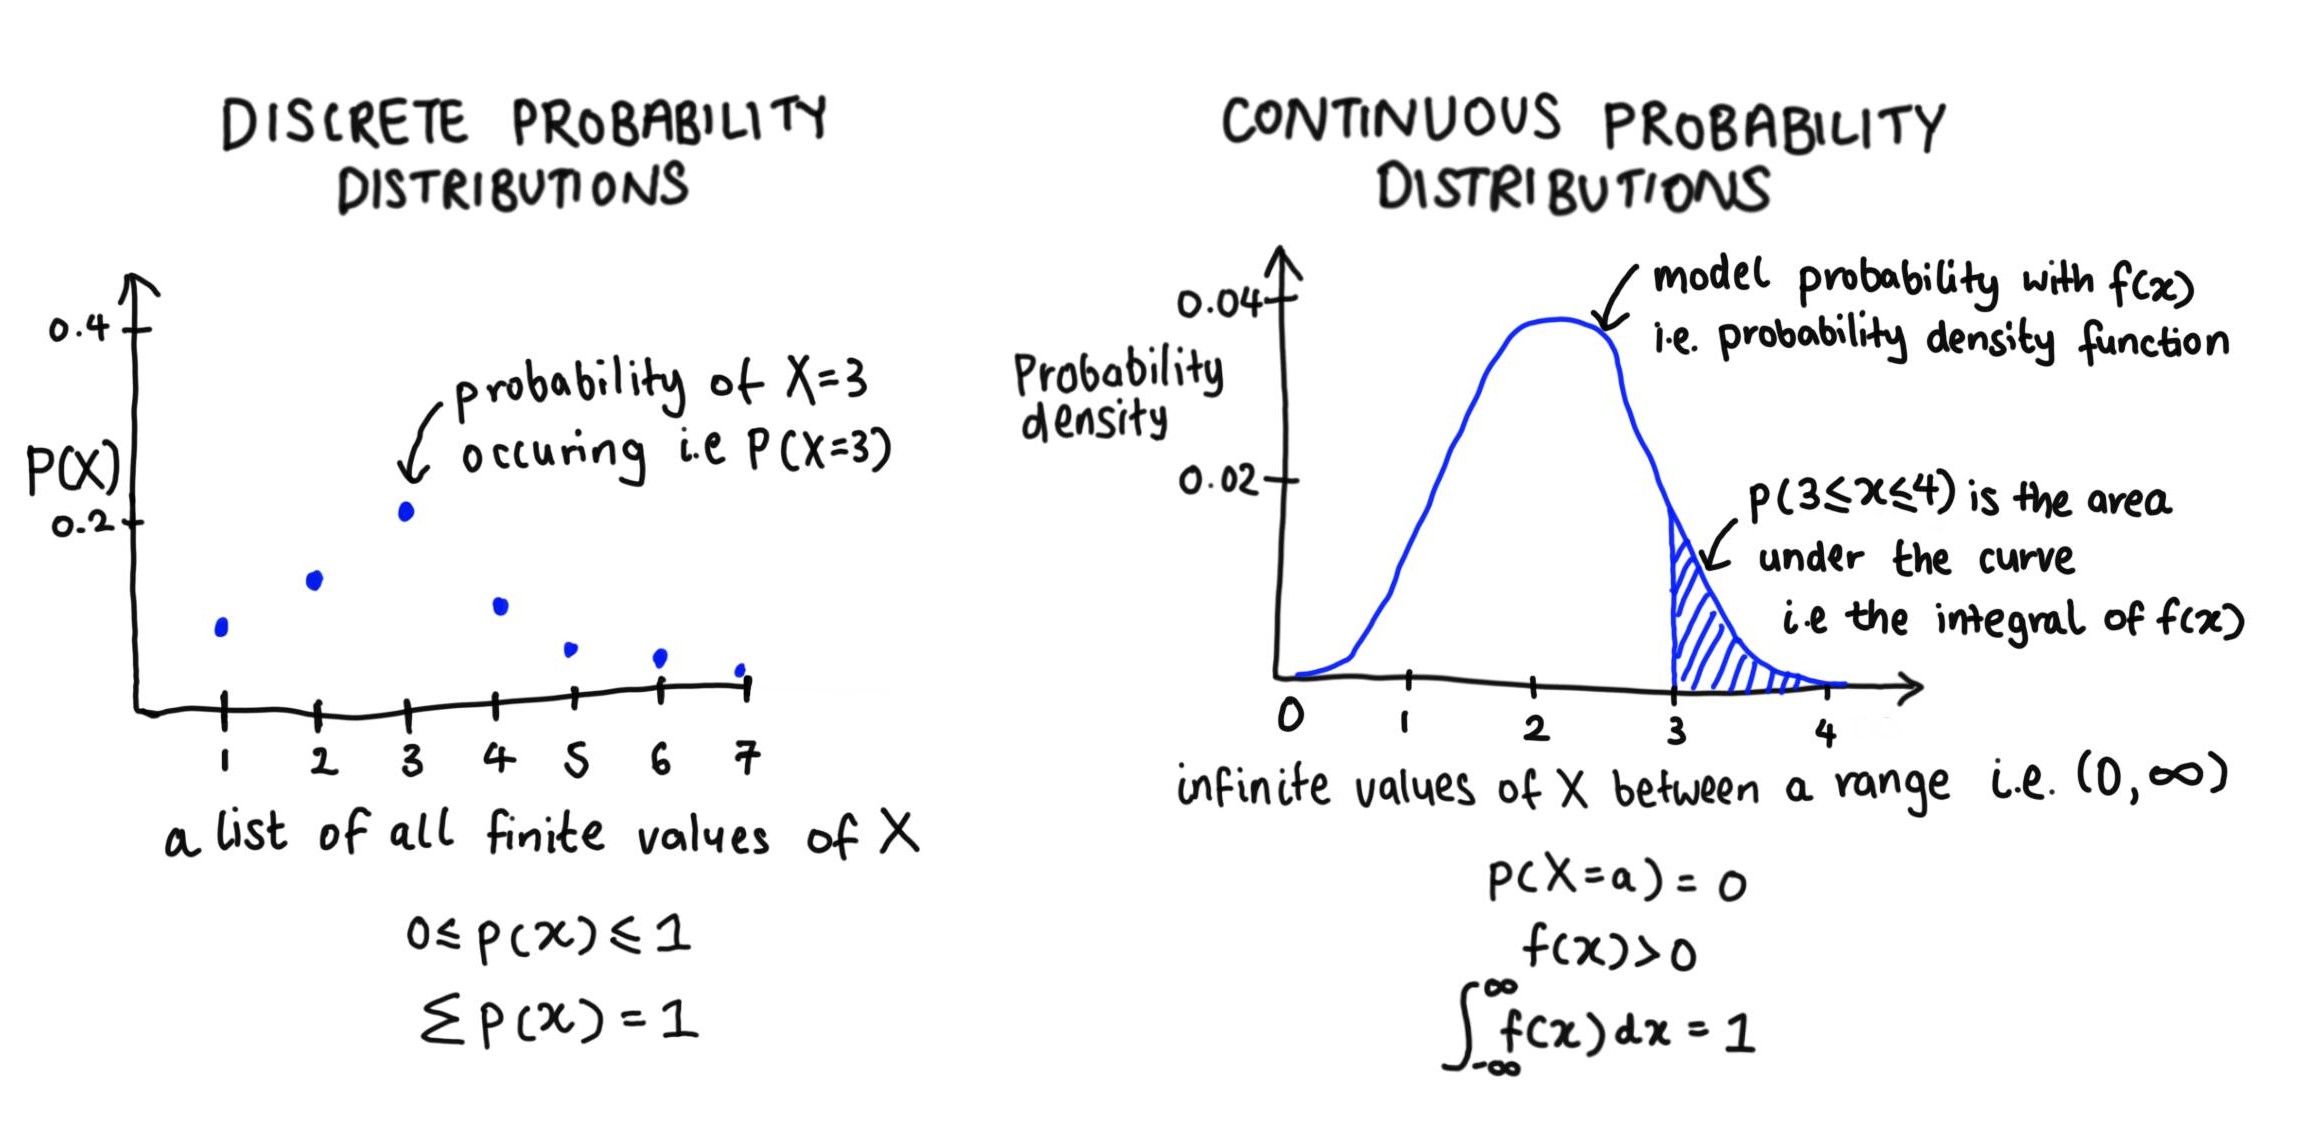 DISCRETE PROBABILITY
DISTRIBUTIONS
0.4
probability of X=3
occuring i.e P(X=3)
P(X)
0.2
1 2 3 4 5 6 7
a list of all finite values of X
0≤ p(x) ≤ 1
Σ p(x) = 1
CONTINUOUS PROBABILITY
DISTRIBUTIONS
0.04
model probability with f(x)
i.e. probability density function
Probability
density
0.02
p(3≤x≤4) is the area
under the curve
i.e the integral of f(x)
0 1 2 3 4
infinite values of X between a range i.e. (0,∞)
p(X=a) = 0
f(x)>0
∫_{-∞}^{∞} f(x)dx = 1